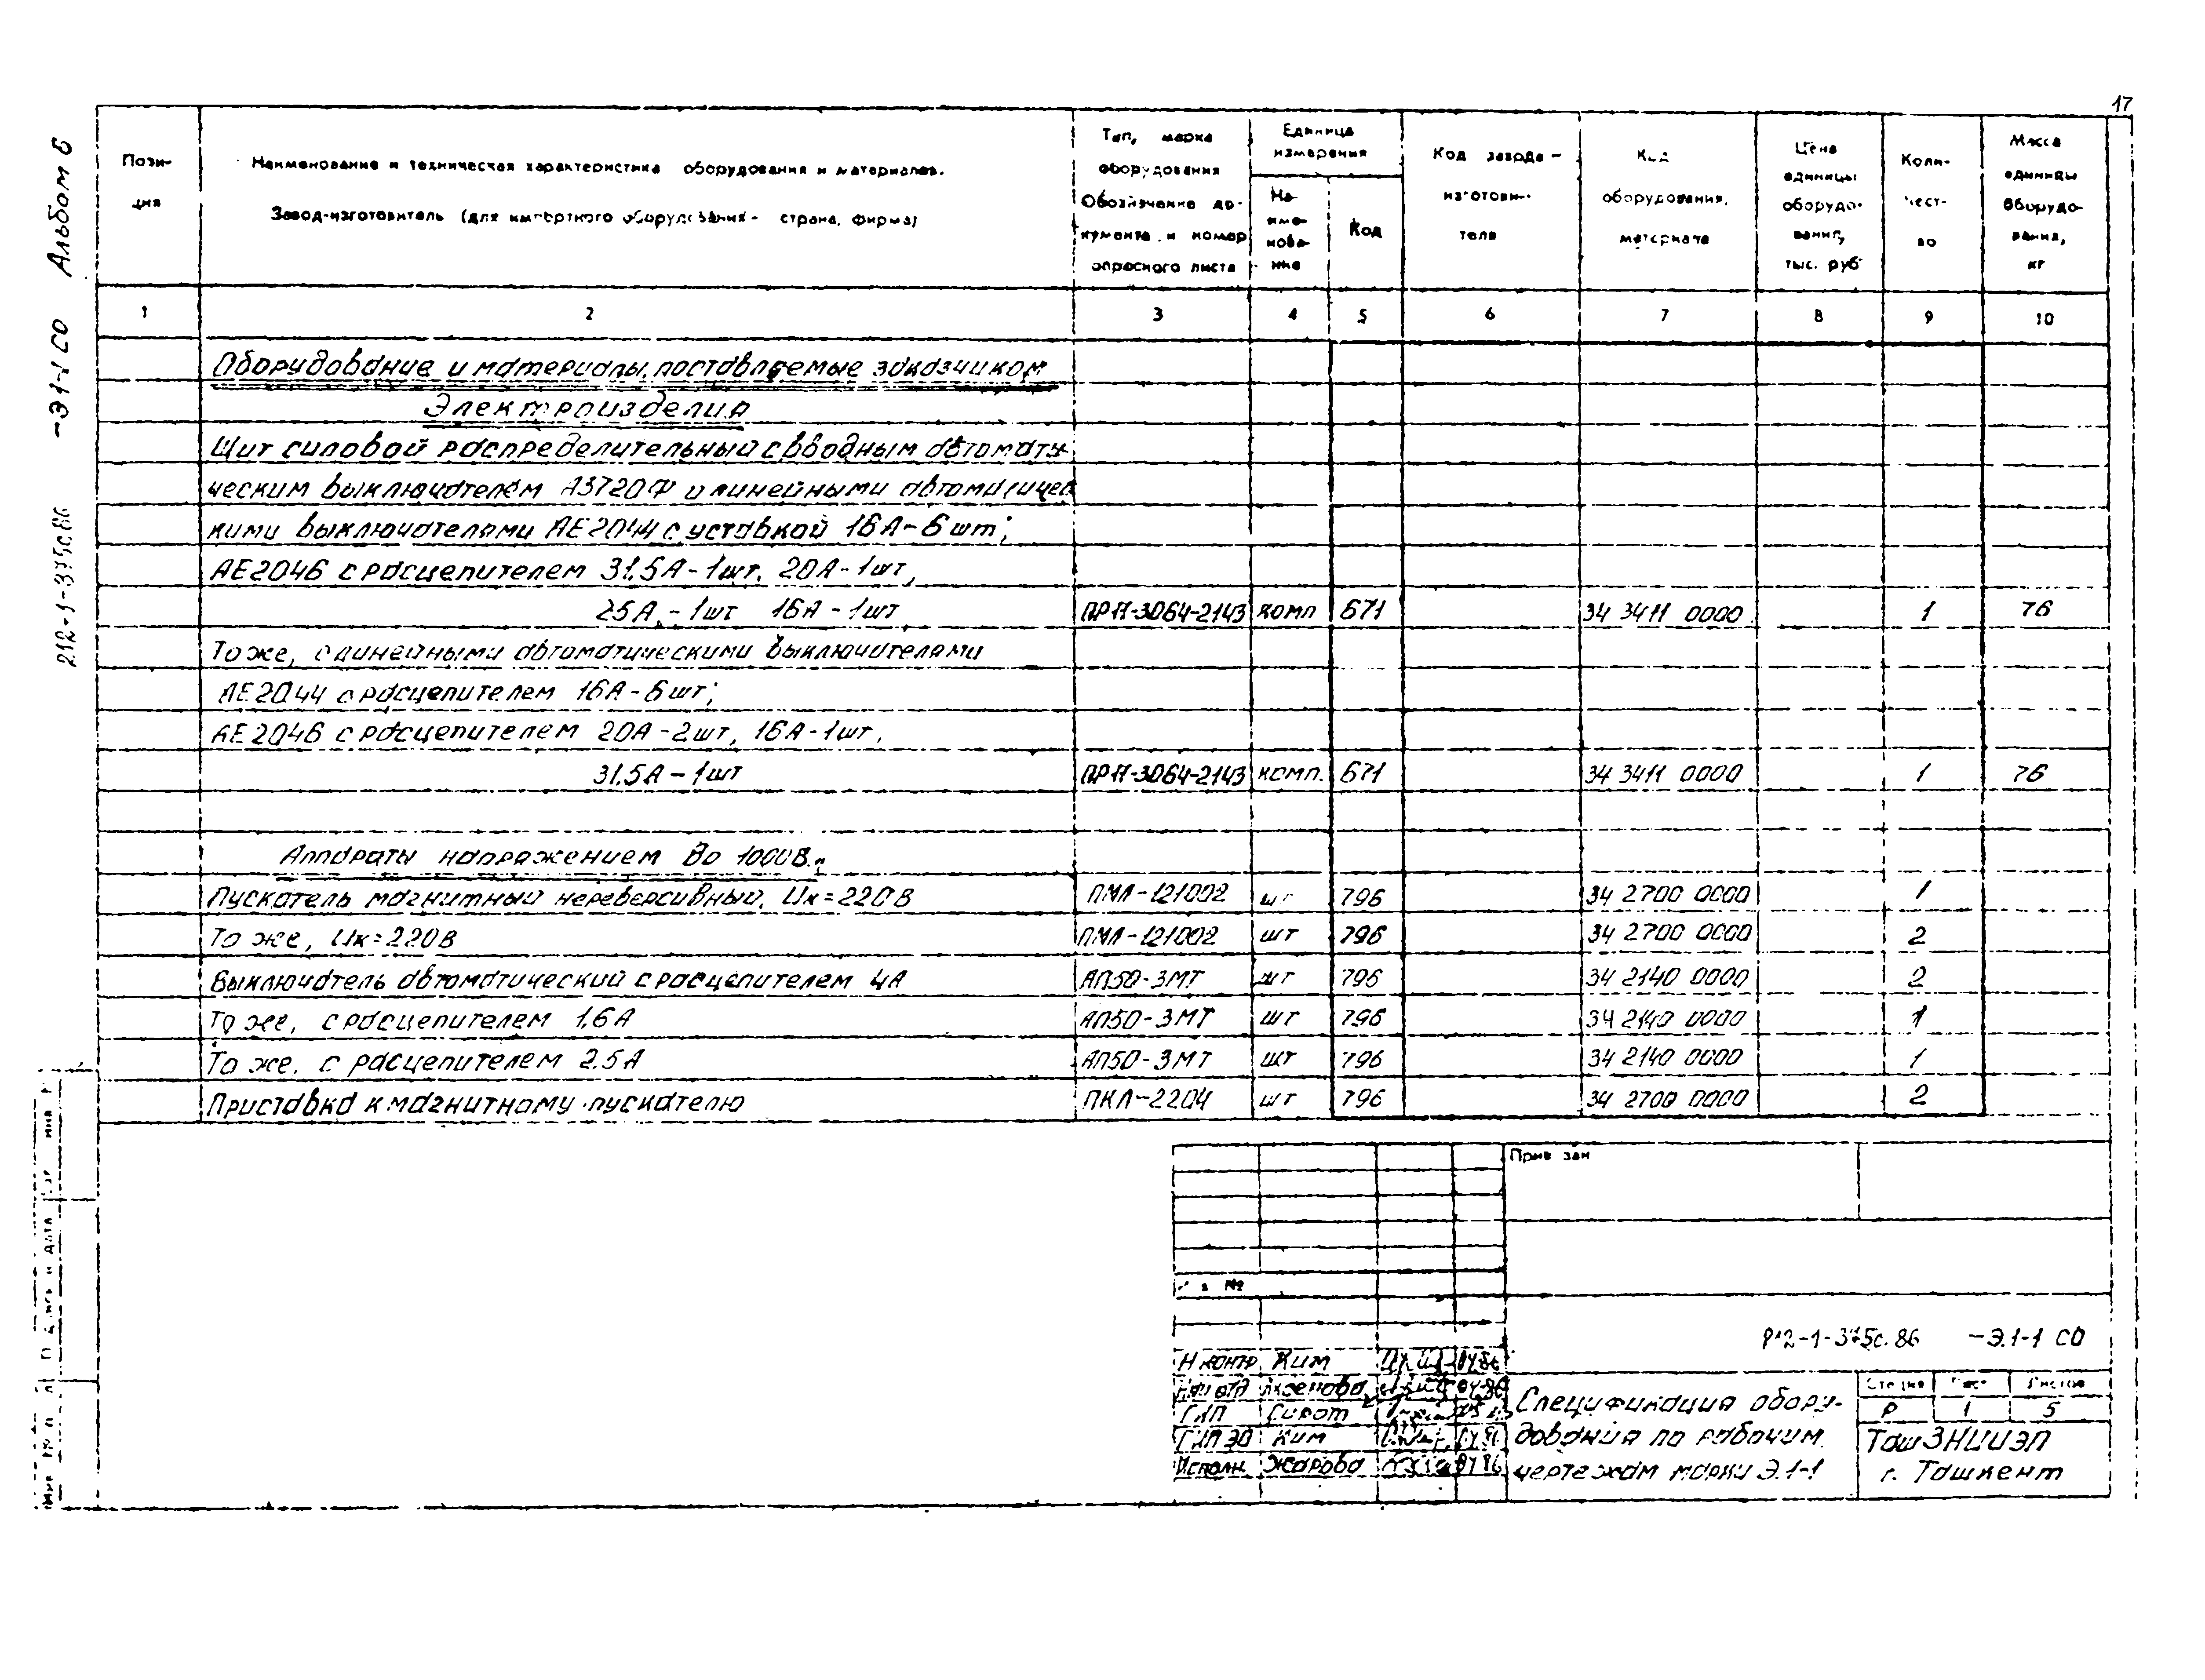 17
Альбом 6
-Э1-1 СО
212-1-375с.86
Пози-
ция
Наименование и техническая характеристика оборудования и материалов.
Завод-изготовитель (для импортного оборудования - страна, фирма)
Тип, марка
оборудования
Обозначение до-
кумента и номер
опросного листа
Единица
измерения
На-
име-
нова-
ние
Код
Код завода-
изготови-
теля
Код
оборудования,
материала
Цена
единицы
оборудо-
вания,
тыс. руб
Коли-
чест-
во
Масса
единицы
оборудо-
вания,
кг
1 2 3 4 5 6 7 8 9 10
Оборудование и материалы, поставляемые заказчиком
Электроизделия
Щит силовой распределительный с вводным автомати-
ческим выключателем А3720Ф и линейными автоматичес
кими выключателями АЕ2044 с уставкой 16А-6шт;
АЕ2046 с расцепителем 31,5А-1шт, 20А-1шт,
25А-1шт 16А-1шт ПР11-3064-2143 комп 671 34 3411 0000 1 76
То же, с линейными автоматическими выключателями
АЕ2044 с расцепителем 16А-6шт;
АЕ2046 с расцепителем 20А-2шт, 16А-1шт,
31,5А-1шт ПР11-3064-2143 комп. 671 34 3411 0000 1 76
Аппараты напряжением до 1000В.
Пускатель магнитный нереверсивный, Uк=220В ПМЛ-121002 шт 796 34 2700 0000 1
То же, Uк=220В ПМЛ-121002 шт 796 34 2700 0000 2
Выключатель автоматический с расцепителем 4А АП50-3МТ шт 796 34 2140 0000 2
То же, с расцепителем 1,6А АП50-3МТ шт 796 34 2140 0000 1
То же, с расцепителем 2,5А АП50-3МТ шт 796 34 2140 0000 1
Приставка к магнитному пускателю ПКЛ-2204 шт 796 34 2700 0000 2
Прив зан
№
212-1-375с.86 -Э.1-1 СО
Н контр Ким 04.86
Нач отд Аксенова 04.86
ГИП Сирот
ГИП ЭО Ким
Исполн. Жарова 04.86
Спецификация обору-
дования по рабочим
чертежам марки Э.1-1
Стадия Лист Листов
Р 1 5
ТашЗНИИЭП
г. Ташкент